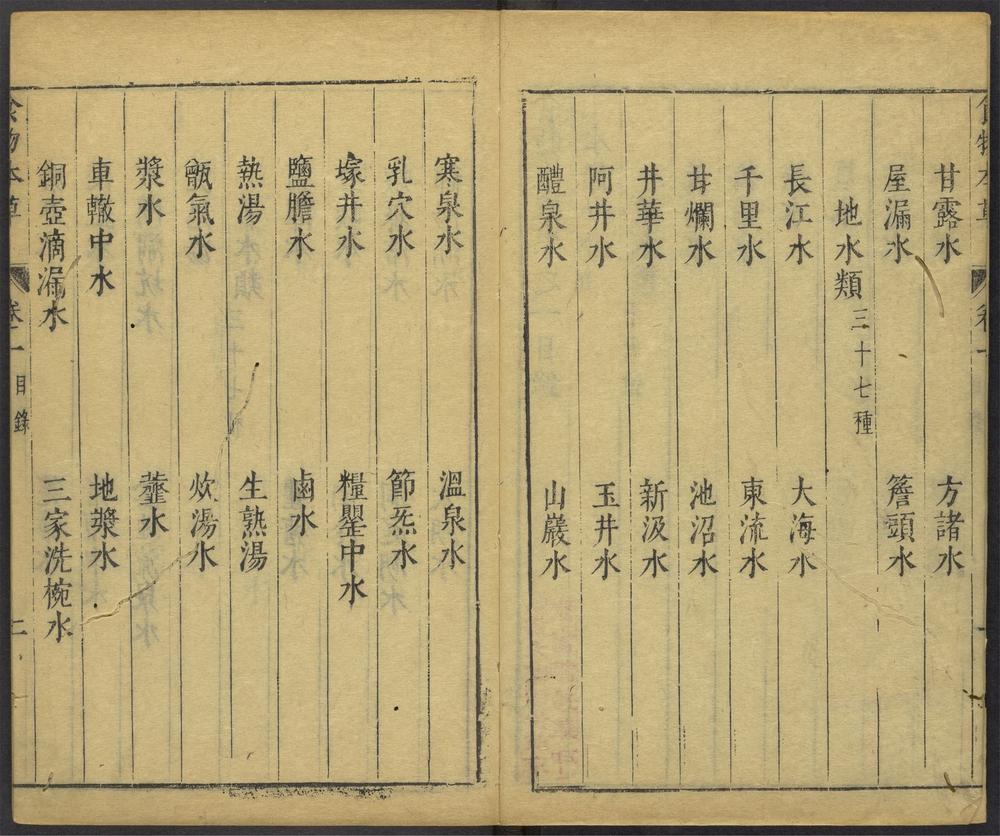 甘露水 方諸水
屋漏水 簷頭水
地水類三十七種
長江水 大海水
千里水 東流水
甘爛水 池沼水
井華水 新汲水
阿井水 玉井水
醴泉水 山巖水
寒泉水 溫泉水
乳穴水 節炁水
塚井水 糧罌中水
鹽膽水 鹵水
熱湯 生熟湯
甑氣水 炊湯水
漿水 虀水
車轍中水 地漿水
銅壺滴漏水 三家洗椀水
食物本草 卷一目錄 二